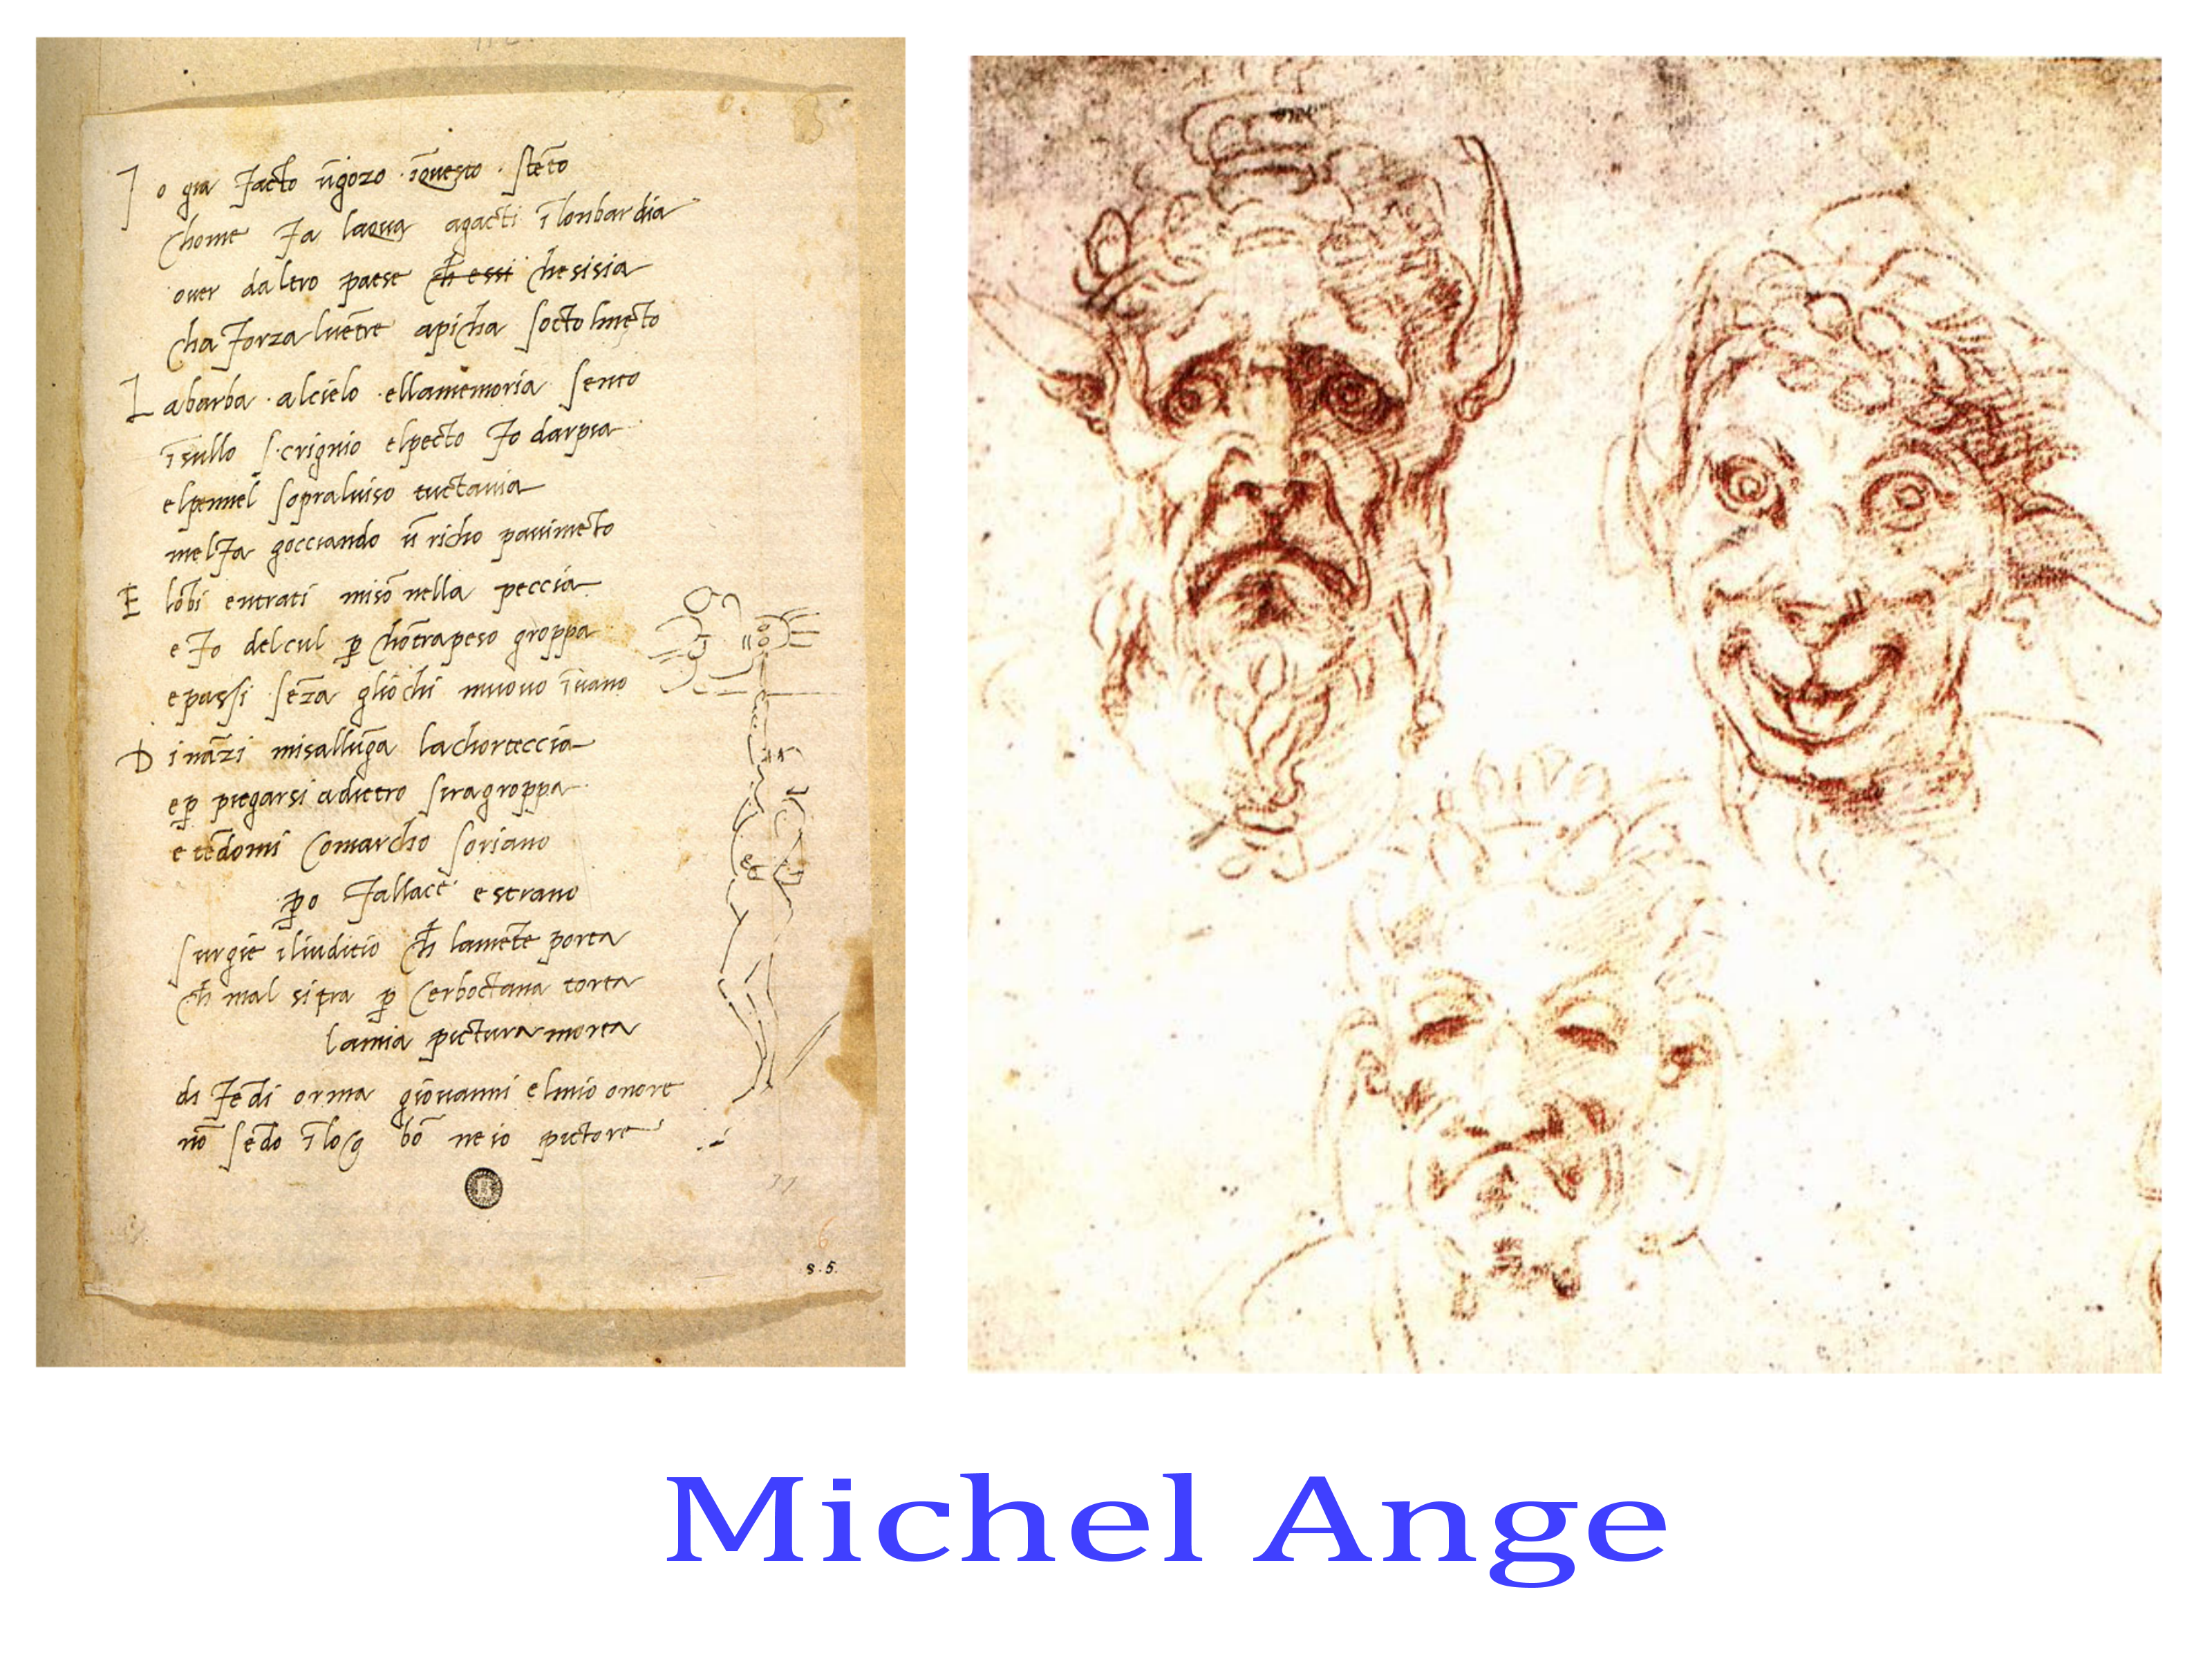 I o gia facto ūgozo īquesto stēto
chome fa laqua agacti ī lonbardia
over daltro paese ch̄ essi chesisia
cha forza lvētre apicha socto lmēto
L abarba alcielo ellamemoria sento
īsullo scrignio elpecto fo darpia
elpennel sopralviso tuctavia
melfa gocciando ū richo pavimēto
E lōbi entrati misō nella peccia
e fo delcul p̱ chōtrapeso groppa
e passi sēza gliochi muovo īvano
D ināzi misallūga lachorteccia
e p̱ piegarsi adietro siragroppa
e tēdomi comarcho soriano
p̱o fallace estrano
surgie iliuditio ch̄ lamēte porta
ch̄ mal si tra p̱ cerboctana torta
lamia pictura morta
di fēdi orma giovanni elmio onore
nō sēdo ī loco bō ne io pictore
6
s.5.
Michel Ange